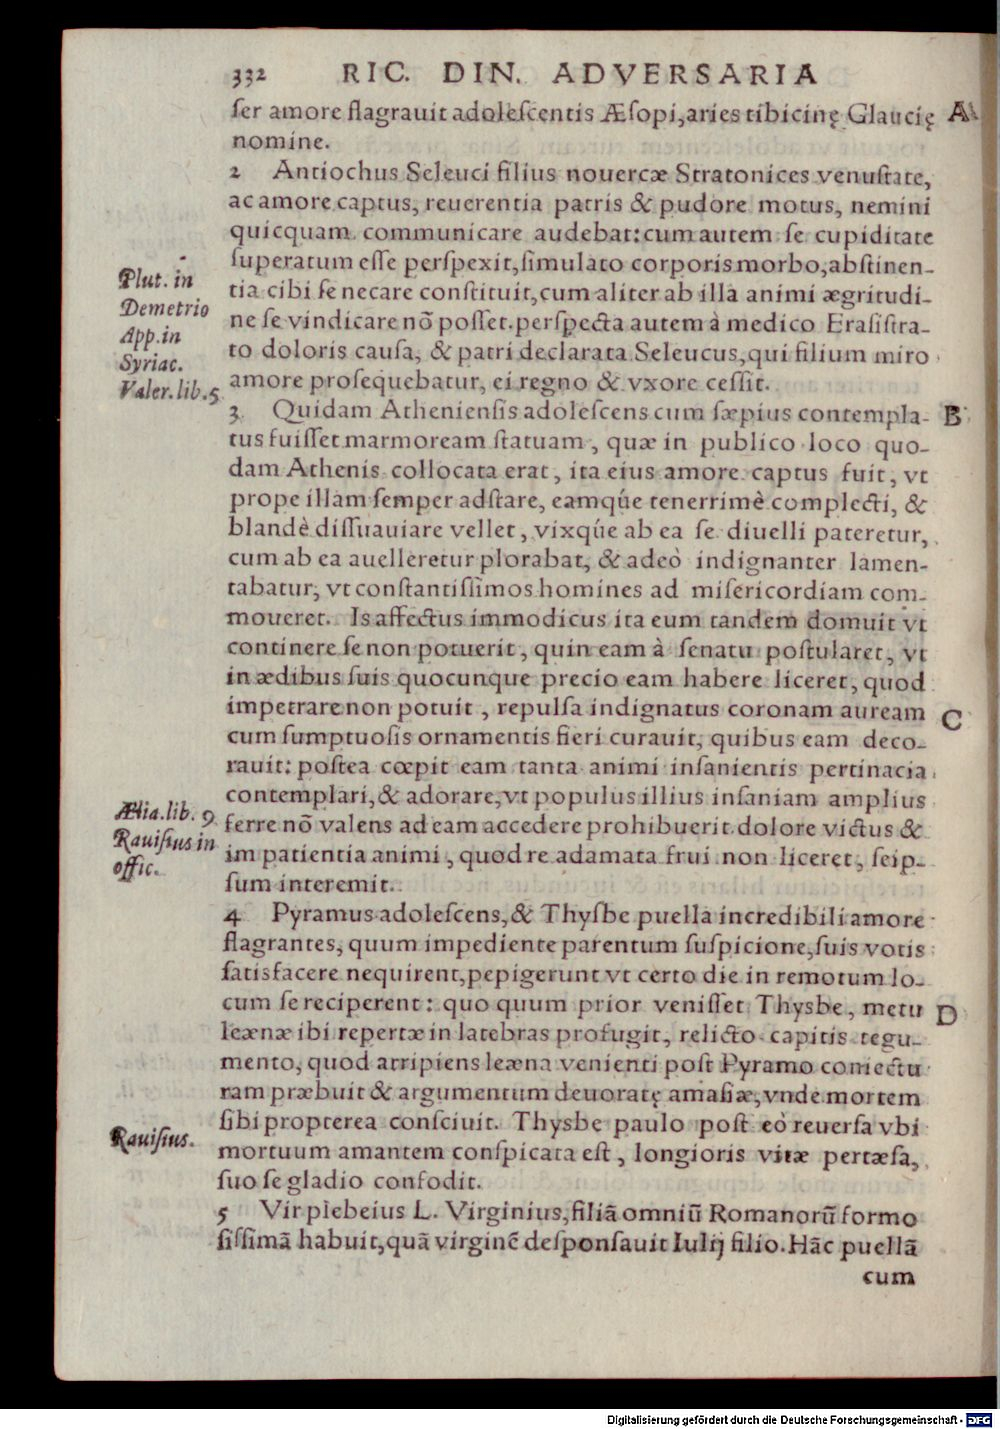 332 RIC. DIN. ADVERSARIA
ſer amore flagrauit adoleſcentis Æſopi, aries tibicinę Glaucię A
nomine.
2 Antiochus Seleuci filius nouercæ Stratonices venuſtate,
ac amore captus, reuerentia patris & pudore motus, nemini
quicquam communicare audebat: cum autem ſe cupiditate
ſuperatum eſſe perſpexit, ſimulato corporis morbo, abſtinen-
tia cibi ſe necare conſtituit, cum aliter ab illa animi ægritudi-
ne ſe vindicare nõ poſſet. perſpecta autem à medico Eraſiſtra-
to doloris cauſa, & patri declarata Seleucus, qui filium miro
amore proſequebatur, ei regno & vxore ceſſit.
Plut. in
Demetrio
App. in
Syriac.
Valer. lib. 5
3 Quidam Athenienſis adoleſcens cum ſæpius contempla- B
tus fuiſſet marmoream ſtatuam, quæ in publico loco quo-
dam Athenis collocata erat, ita eius amore captus fuit, vt
prope illam ſemper adſtare, eamq́ue tenerrimè complecti, &
blandè diſſuauiare vellet, vixq́ue ab ea ſe diuelli pateretur,
cum ab ea auelleretur plorabat, & adeò indignanter lamen-
tabatur, vt conſtantiſſimos homines ad miſericordiam com-
moueret. Is affectus immodicus ita eum tandem domuit vt
continere ſe non potuerit, quin eam à ſenatu poſtularet, vt
in ædibus ſuis quocunque precio eam habere liceret, quod
impetrare non potuit, repulſa indignatus coronam auream C
cum ſumptuoſis ornamentis fieri curauit, quibus eam deco-
rauit: poſtea cœpit eam tanta animi inſanientis pertinacia
contemplari, & adorare, vt populus illius inſaniam amplius
ferre nõ valens ad eam accedere prohibuerit dolore victus &
impatientia animi, quod re adamata frui non liceret, ſeip-
ſum interemit.
Ælia. lib. 9
Rauiſius in
offic.
4 Pyramus adoleſcens, & Thyſbe puella incredibili amore
flagrantes, quum impediente parentum ſuſpicione, ſuis votis
ſatisfacere nequirent, pepigerunt vt certo die in remotum lo-
cum ſe reciperent: quo quum prior veniſſet Thysbe, metu D
leænæ ibi repertæ in latebras profugit, relicto capitis tegu-
mento, quod arripiens leæna venienti poſt Pyramo coniectu
ram præbuit & argumentum deuoratę amaſiæ, vnde mortem
ſibi propterea conſciuit. Thysbe paulo poſt eò reuerſa vbi
mortuum amantem conſpicata eſt, longioris vitæ pertæſa,
ſuo ſe gladio confodit.
Rauiſius.
5 Vir plebeius L. Virginius, filiã omniũ Romanorũ formo
ſiſſimã habuit, quã virginẽ deſponſauit Iulij filio. Hãc puellã
cum
Digitalisierung gefördert durch die Deutsche Forschungsgemeinschaft - DFG